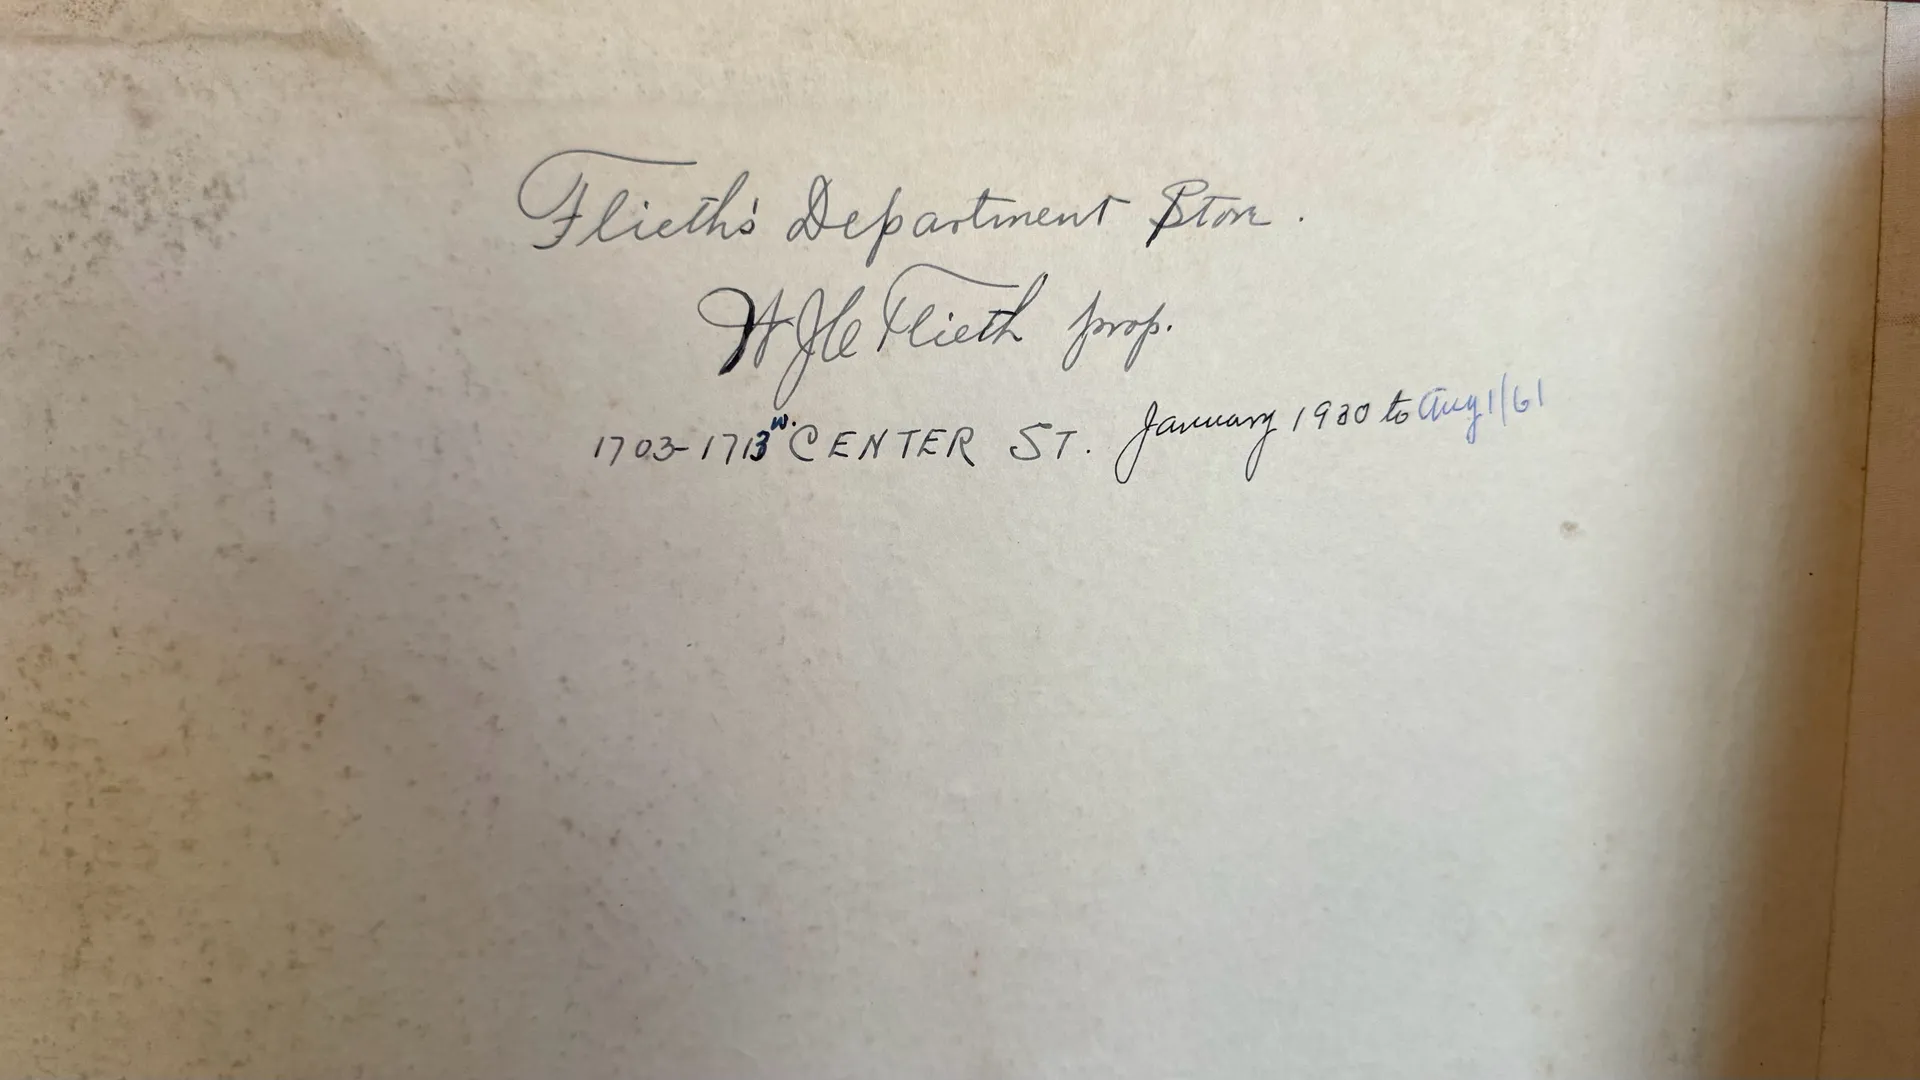 Flieth's Department Store.
W J C Flieth prop.
1703-1713 W. CENTER ST. January 1930 to Aug 1/61